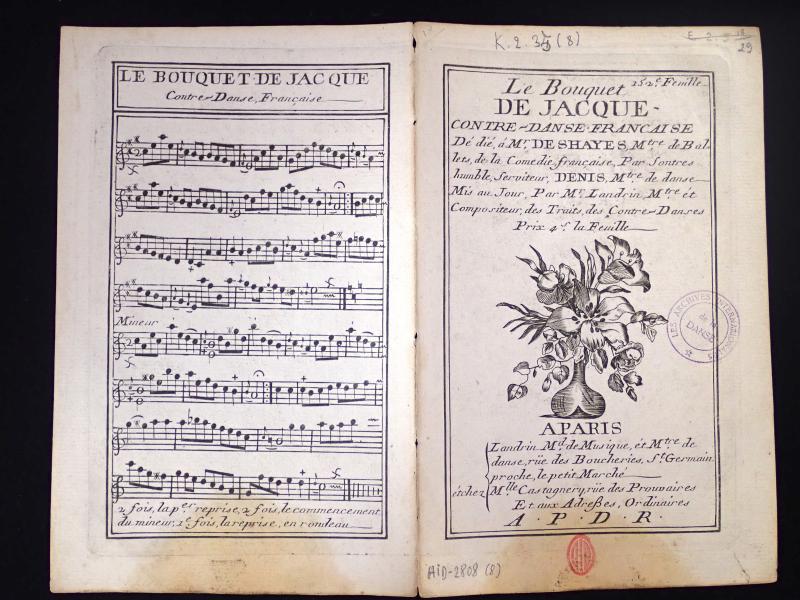 LE BOUQUET DE JACQUE
Contre-Danse, Française
Mineur
2 fois, la p.er reprise, 2 fois, le commencement
du mineur, 1.e fois, la reprise, en rondeau
K.2.35 (8)
29
152.e Feuille
Le Bouquet
DE JACQUE-
CONTRE-DANSE FRANCAISE
Dé dié, à M.r DESHAYES, M.tre de Bal
lets, de la Comedie, française, Par Sontres
humble, Serviteur, DENIS, M.tre de danse
Mis au Jour, Par M.r Landrin, M.tre ét
Compositeur, des Traits, des Contre-Danses
Prix 4.s la Feuille
LES ARCHIVES INTERNATIONALES
de la
DANSE
A PARIS
Landrin M.d de Musique, ét M.tre de
danse, rüe des Boucheries, S.t Germain
proche, le petit Marché
étchez
M.lle Castagnery, rüe des Prouvaires
Et aux Adreßes, Ordinaires
A . P . D . R .
AID-2808 (8)